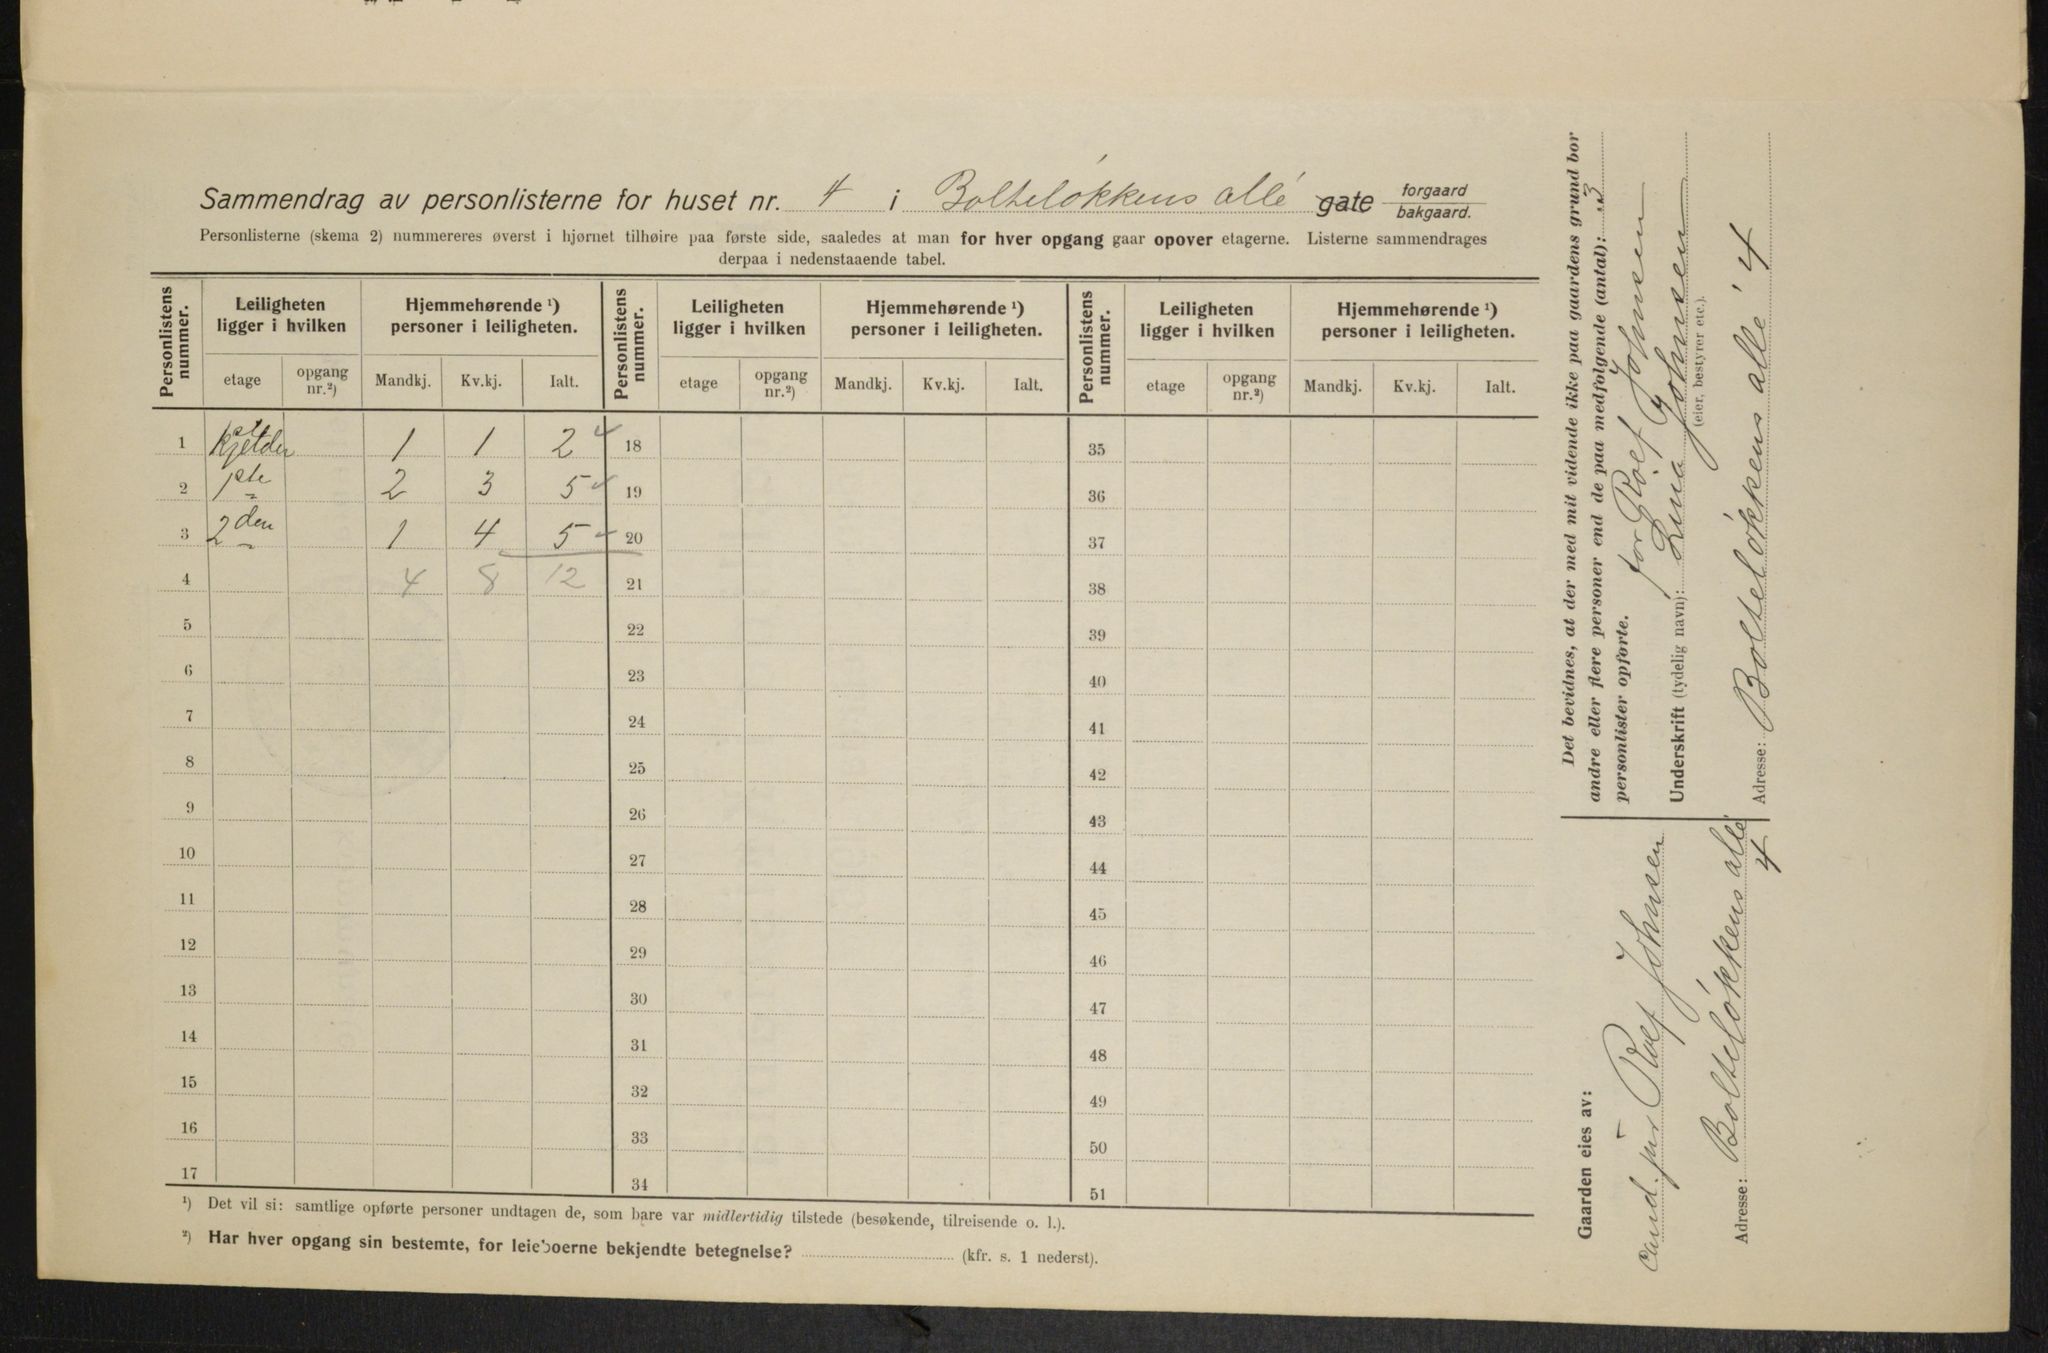 Sammendrag av personlisterne for huset nr. 4 i Bolteløkkens allé gate forgaard bakgaard.
Personlisterne (skema 2) nummereres øverst i hjørnet tilhøire paa første side, saaledes at man for hver opgang gaar opover etagerne. Listerne sammendrages
derpaa i nedenstaaende tabel.
Personlistens nummer. Leiligheten ligger i hvilken Hjemmehørende ¹) personer i leiligheten. Personlistens nummer. Leiligheten ligger i hvilken Hjemmehørende ¹) personer i leiligheten. Personlistens nummer. Leiligheten ligger i hvilken Hjemmehørende ¹) personer i leiligheten.
etage opgang nr.²) Mandkj. Kv.kj. Ialt. etage opgang nr.²) Mandkj. Kv.kj. Ialt. etage opgang nr.²) Mandkj. Kv.kj. Ialt.
1 Kjelder 1 1 2 18 35
2 1ste 2 3 5 19 36
3 2den 1 4 5 20 37
4 4 8 12 21 38
5 22 39
6 23 40
7 24 41
8 25 42
9 26 43
10 27 44
11 28 45
12 29 46
13 30 47
14 31 48
15 32 49
16 33 50
17 34 51
¹) Det vil si: samtlige opførte personer undtagen de, som bare var midlertidig tilstede (besøkende, tilreisende o. l.).
²) Har hver opgang sin bestemte, for leieboerne bekjendte betegnelse? (kfr. s. 1 nederst).
Det bevidnes, at der med mit vidende ikke paa gaardens grund bor
andre eller flere personer end de paa medfølgende (antal): 3
personlister opførte.
for Rolf Johnsen
Underskrift (tydelig navn): Lina Johnsen
(eier, bestyrer etc.).
Adresse: Bolteløkkens alle' 4
Gaarden eies av:
Cand. jur Rolf Johnsen
Adresse: Bolteløkkens allé
4